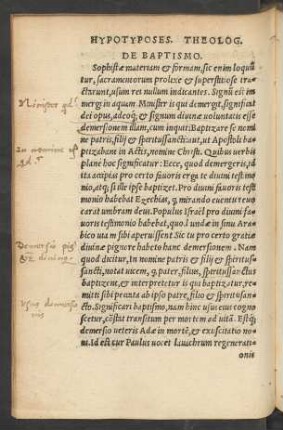 HYPOTYPOSES. THEOLOG.
DE BAPTISMO.
Sophistæ materiam & formam, sic enim loquũ
tur, sacramentorum prolixe & superstitiose tra
ctarunt, usum rei nullum indicantes. Signũ est im
mergi in aquam. Minister is qui demergit, significat
dei opus, adeoq; & signum divinæ voluntatis esse
demersionem illam, cum inquit: Baptizare se nomi
ne patris, filij & spiritussancti: ut Apostoli ba
ptizabant in Actis, nomine Christi. Quibus verbis
plane hoc significatur: Ecce, quod demergeris, id
ita accipias pro certo favoris erga te divini testimo
nio, atq; si ille ipse baptizet. Pro divini favoris testi
monio habebat Ezechias, q̃ mirando eventu revo
carat umbram deus. Populus Israël pro divini fa-
voris testimonio habebat, quod undæ in sinu Ara
bico viam sibi aperuissent. Sic tu pro certo gratiæ
divinæ pignore habeto hanc demersionem. Nam
quod dicitur, In nomine patris & filij & spiritus-
sancti, notat vicem, q̃. pater, filius, spiritussanctus
baptizent, & interpretetur is qui baptizatur, re-
mitti sibi peccata ab ipso patre, filio & spiritusan-
cto. Significari baptismo, nam hinc usus eius cogno
scetur, cõstat transitum per mortem ad vitã. Estq;
demersio veteris Adæ in mortẽ, & excitatio no-
vi. Id est cur Paulus vocet lavachrum regenerati-
onis
Minister
in nomine
Demersio
Usus demersio
nis